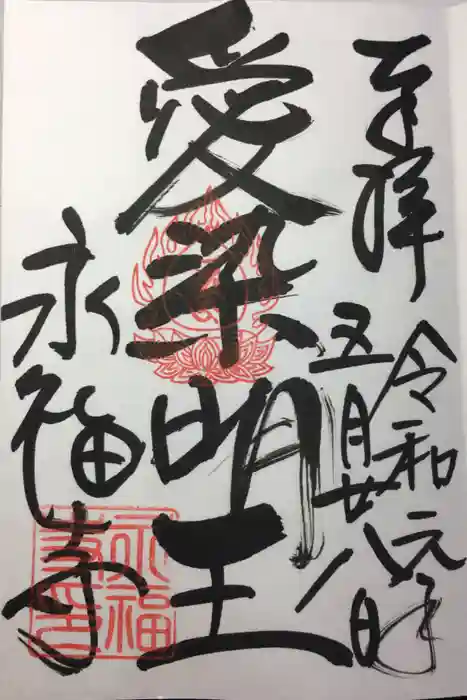 奉拝
令和元年
五月廿八日
愛染明王
永福寺
永福寺印